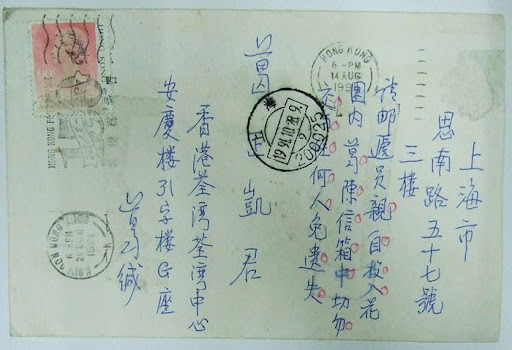 上海市
思南路五十七號
三樓
請郵遞员親自投入花
園内葛陳信箱中切勿
交任何人免遺失
葛正凱君
香港荃灣荃灣中心
安慶樓31字樓G座
葛缄
HONG KONG
6 - PM
14 AUG
上海
200025
HONG KONG